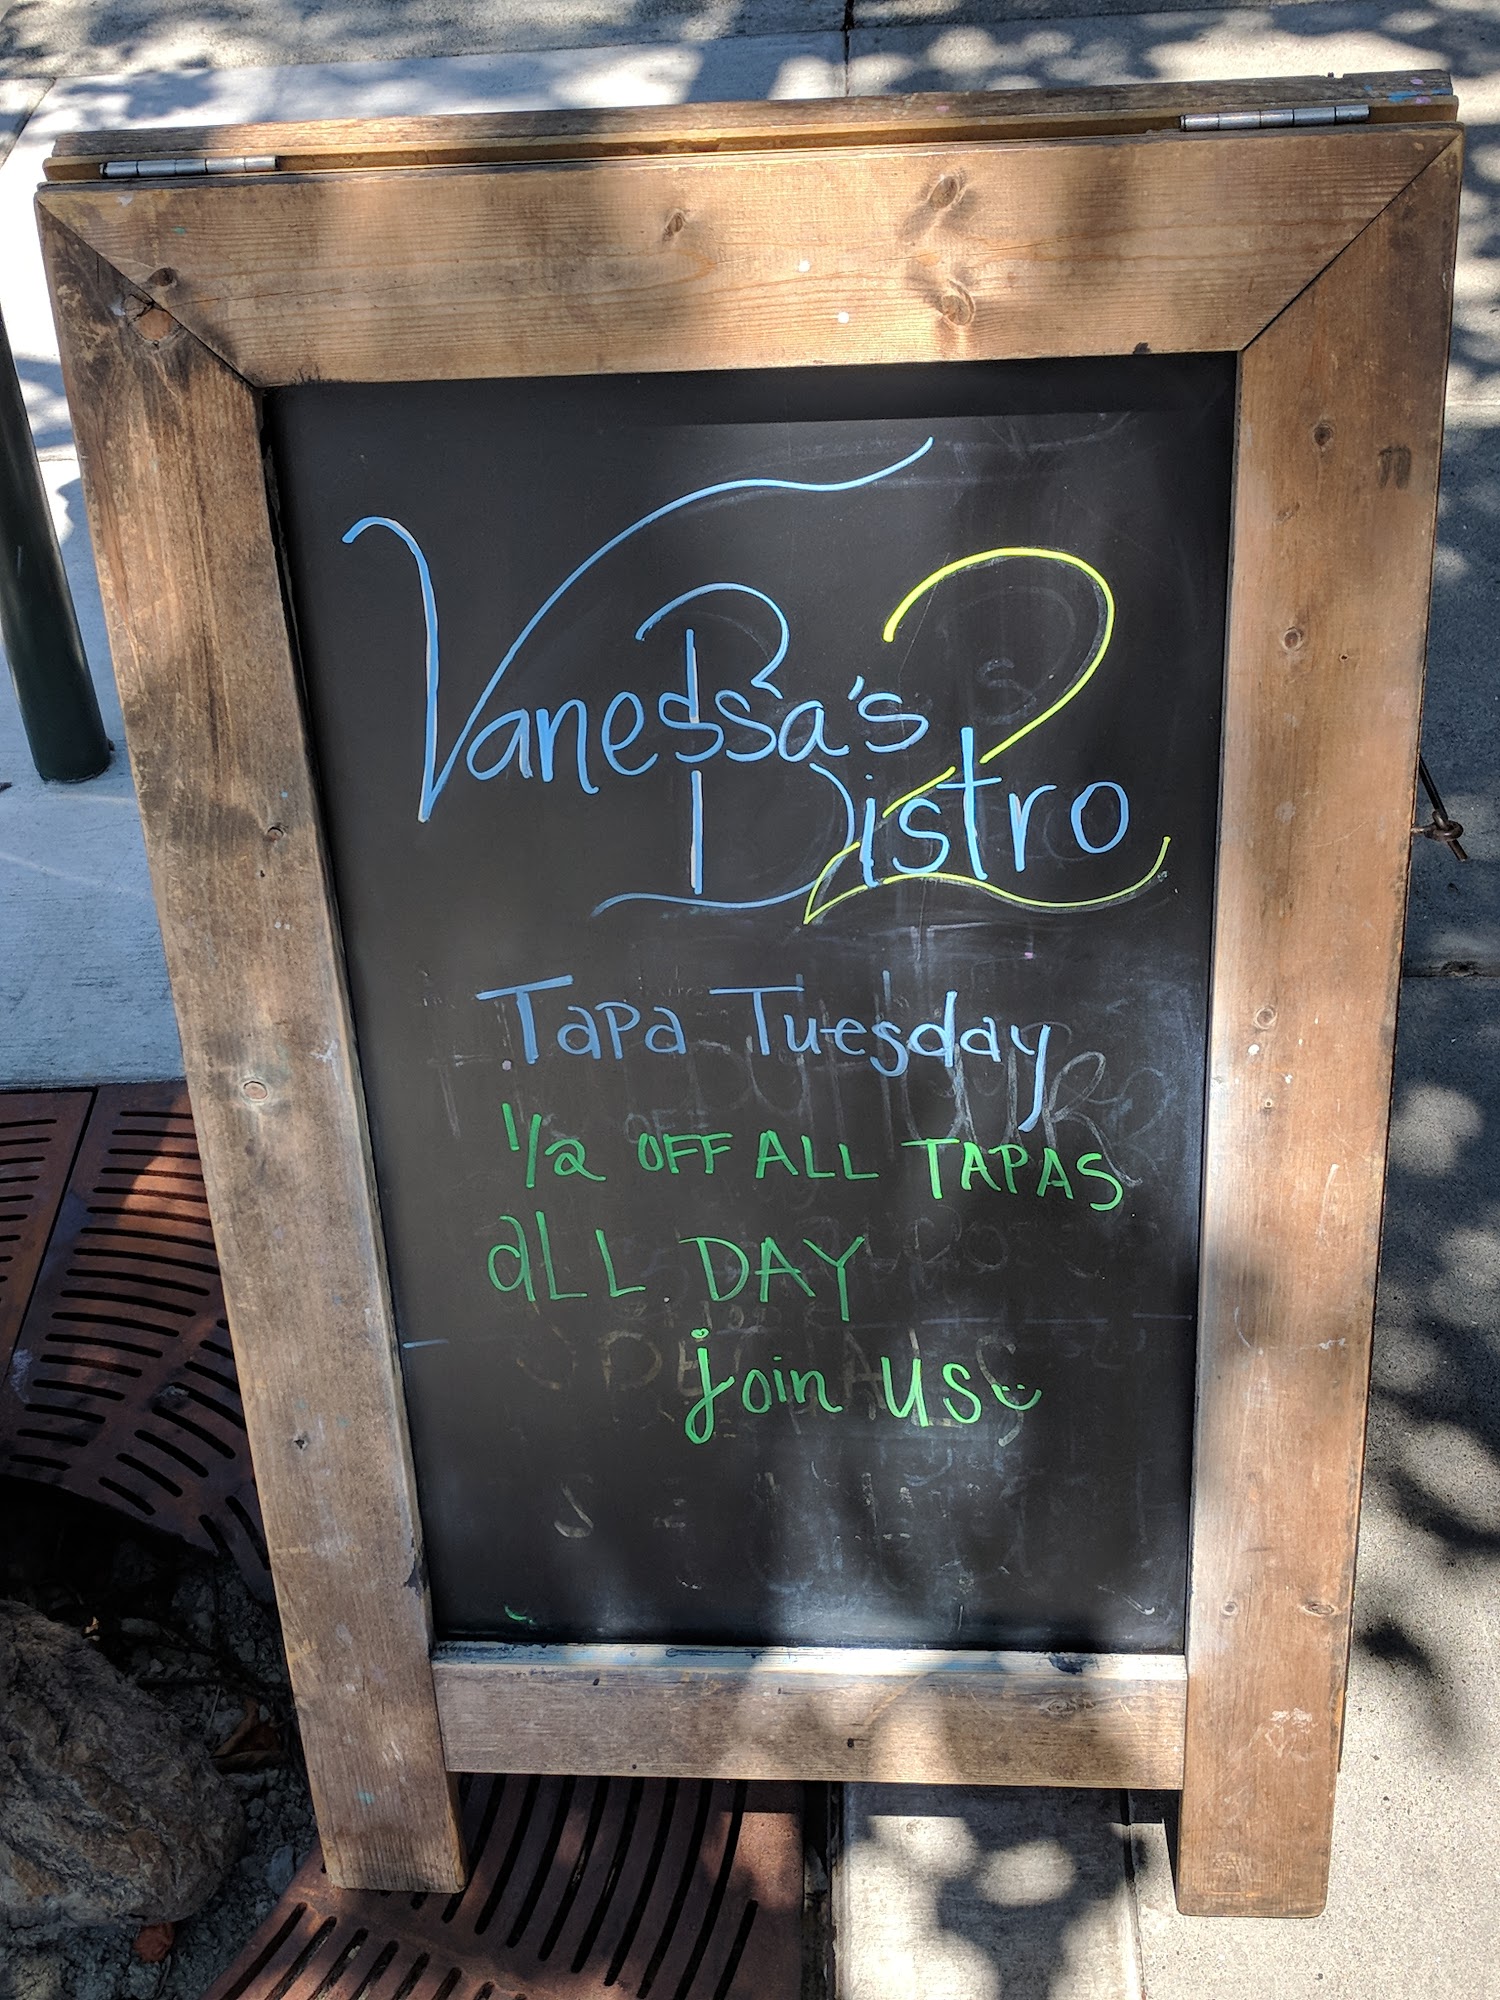 Vanessa's
Bistro 2
Tapa Tuesday
1/2 OFF ALL TAPAS
aLL DAY
join us